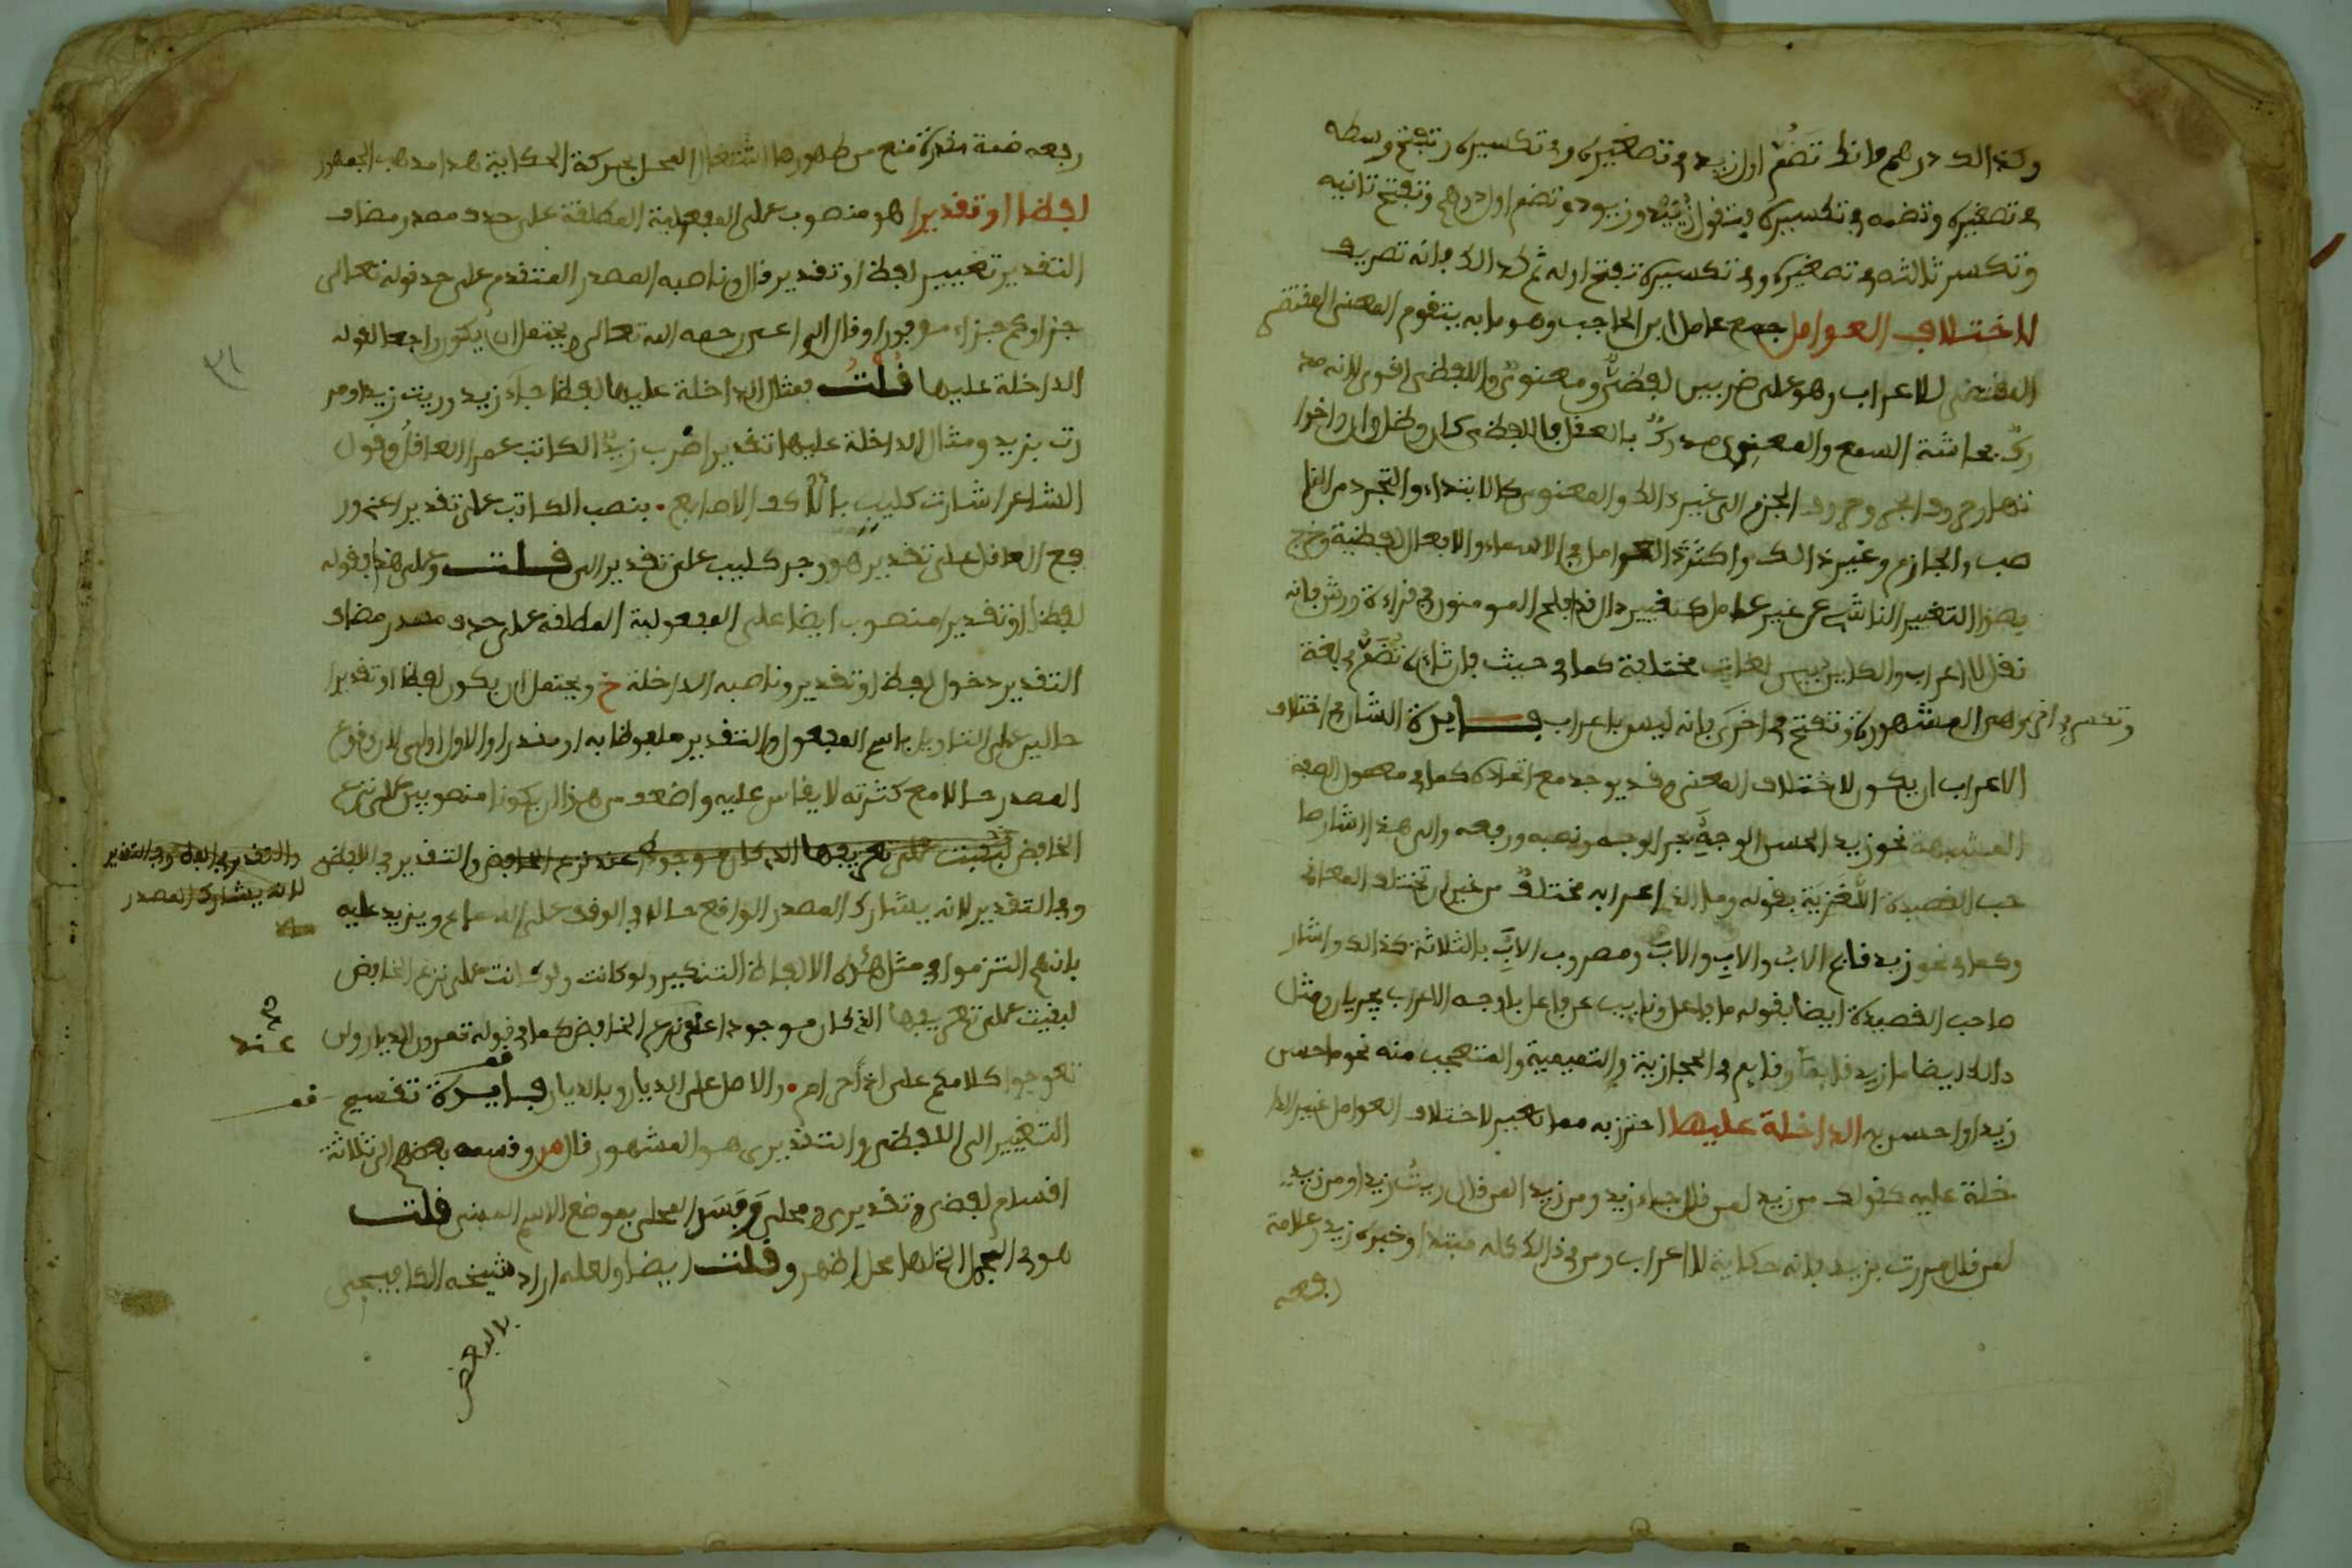 وكذالك درهم فانك تضم اول زيد في تصغيره وفي تكسيره وتفتح وسطه
في تصغيره وتضمه في تكسيره فتقول زييد وزيود وتضم اول درهم وتفتح ثانيه
وتكسر ثالثه في تصغيره وفي تكسيره تفتح اوله ثم كذالك فانه تصريف
لاختلاف العوامل جمع عامل ابن الحاجب وهو ما به يتقوم المعنى المقتضي
المقتضي للاعراب وهو على ضربين لفظيٌّ ومعنويٌّ واللفظي اقوى لانه مد
ركٌ بحاسة السمع والمعنوي مدركٌ بالعقل فاللفظي كان وظل وان واخوا
تها وحروف الجر وحروف الجزم الى غير ذالك والمعنوي كالابتداء والتجرد من النا
صب والجازم وغير ذالك واكثر العوامل في الاسماء والافعال لفظية وخرج
بهذا التغيير الناشي عن غير عامل كتغيير دال قد افلح المومنون في قراءة ورش فانه
نقل لا اعراب والكاين بين لغات مختلفة كما في حيث فان ثاءه تُضمُّ في لغة
وتكسر في اخرى وهي المشهورة وتفتح في اخرى فانه ليس باعراب فايدة الشان في اختلاف
الاعراب ان يكون لاختلاف المعنى وقد يوجد مع اتحاده كما في معمول الصفة
المشبهة نحو زيد الحسن الوجه بجر الوجه ونصبه ورفعه والى هذا اشار صا
حب القصيدة اللُّغزيّة بقوله وما الذي اعرابه مختلفٌ من غير ان تختلف المعاني
وكما في نحو زيد قايم الابُ والابِ والابَ ومضروب الاب بالثلاثة كذالك واشار
صاحب القصيدة ايضا بقوله ما فاعل ونايب عن فاعل باوجه الاعراب يجريان ومثل
ذالك ايضا ما زيد قايما وقايم في الحجازية والتميمية والمتعجب منه نحو ما احسن
زيدا واحسن به الداخلة عليها احترز به مما تغير لاختلاف العوامل غير الدا
خلة عليه كقولك من زيد لمن قال جاء زيد ومن زيدا لمن قال رايتُ زيدا ومن زيد
لمن قال مررت بزيد فانه حكاية لا اعراب ومن في ذالك كله مبتدا وخبره زيد وعلامة
رفعه
رفعه ضمة مقدرة منع من ظهورها اشتغال المحل بحركة الحكاية هذا مذهب الجمهور
لفظا او تقديرا هو منصوب على المفعولية المطلقة على حذف مصدر مضاف
التقدير تغيير لفظ او تقدير قال وناصبه المصدر المتقدم على حد قوله تعالى
جزاوكم جزاء موفورا وقال الراعي رحمه الله تعالى ويحتمل ان يكون راجعا لقوله
الداخلة عليها قُلْتُ فمثال الداخلة عليها لفظا جاء زيد ورايت زيدا ومر
رت بزيد ومثال الداخلة عليها تقديرا ضرب زيدٌ الكاتب عمرا العاقلُ وقول
الشاعر اشارت كليب بالاكف الاصابع • بنصب الكاتب على تقدير اعني ور
فع العاقل على تقدير هو وجر كليب على تقدير الى قلت وعلى هذا فقوله
لفظا او تقديرا منصوب ايضا على المفعولية المطلقة على حذف مصدر مضاف
التقدير دخول لفظ او تقدير وناصبه الداخلة خ ويحتمل ان يكون لفظا او تقديرا
حالين على التاويل باسم المفعول والتقدير ملفوظا به او مقدرا والاول اولى لان وقوع
المصدر حالا مع كثرته لا يقاس عليه واضعف من هذا ان يكونا منصوبين على نزع
الخافض لبقيت على تعريفها الذي كان موجودا عند نزع الخافض والتقدير في اللفظ
وفي التقدير لانه يشارك المصدر الواقع حالا في الوقف على السماع ويزيد عليه
بانهم التزموا في مثل هذه الالفاظ التنكير ولو كانت ولو كانت على نزع الخافض
لبقيت على تعريفها الذي كان موجودا عند نزع الخافض كما في قوله تمرون الديار ولن
تعوجوا كلامكم علي اذا حرام • والاصل على الديار وبالديار فايدة تقسيم
التغيير الى اللفظي والتقديري هو المشهور قال وقسمه بعضهم الى ثلاثة
اقسام لفظي وتقديري ومحلي وفسر المحلي بموضع الاسم المبني قلت
هو في الجمل التي لها محل اظهر وقلت ايضا ولعله اراد شيخه الكافيجي
والتقدير في اللفظ وفي التقدير
لانه يشارك المصدر
عند
٣١